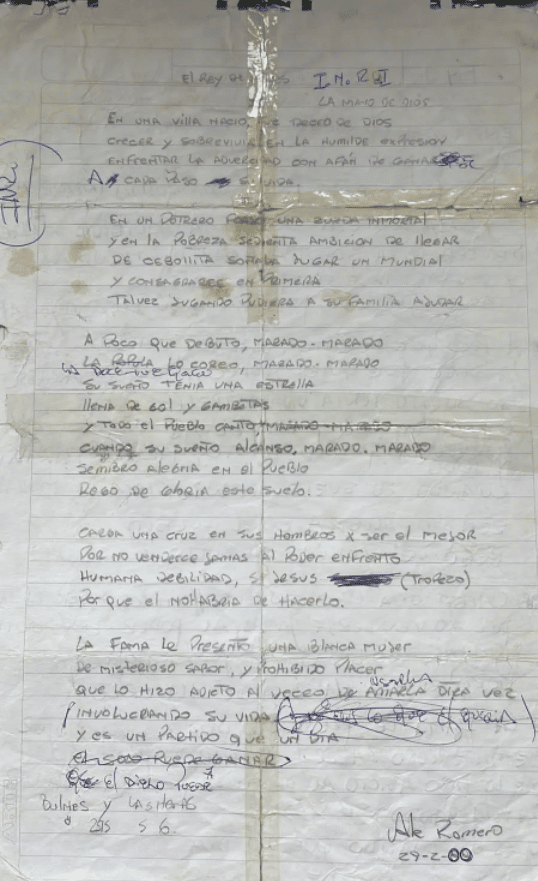 El Rey de I.N.R.I
LA MANO DE DIOS
EN UNA VILLA NACIO, FUE DECEO DE DIOS
CRECER Y SOBREVIVIR EN LA HUMILDE EXPRESION
ENFRENTAR LA ADVERCIDAD CON AFAN DE GANAR
A CADA PASO SU VIDA.
INRI
EN UN POTRERO FORJO UNA ZURDA INMORTAL
Y EN LA POBREZA SEDIENTA AMBICION DE LLEGAR
DE CEBOLLITA SOÑABA JUGAR UN MUNDIAL
Y CONSAGRARCE EN PRIMERA
TALVEZ JUGANDO PUDIERA A SU FAMILIA AYUDAR
A POCO QUE DEBUTO, MARADO-MARADO
LA POPULA LO COREO, MARADO-MARADO
LA Doce
SU SUEÑO TENIA UNA ESTRELLA
LLENA DE GOL Y GAMBETAS
Y TODO EL PUEBLO CANTO, MARADO-MARADO
CUANDO SU SUEÑO ALCANSO, MARADO-MARADO
SEMBRO ALEGRIA EN EL PUEBLO
REGO DE GLORIA ESTE SUELO.
CARGA UNA CRUZ EN SUS HOMBROS X SER EL MEJOR
POR NO VENDERCE JAMAS AL PODER ENFRENTO
HUMANA DEBILIDAD, SI JESUS (TROPEZO)
POR QUE EL NO HABRIA DE HACERLO.
LA FAMA LE PRESENTO UNA BLANCA MUJER
DE MISTERIOSO SABOR, Y PROHIBIDO PLACER
QUE LO HIZO ADICTO AL DECEO DE AMARLA OTRA VEZ
INVOLUCRANDO SU VIDA
Y ES UN PARTIDO QUE UN DIA
EL SOLO PUEDE GANAR
Que el Diego
BULNES Y LAS HERAS
Ale Romero
29-2-00